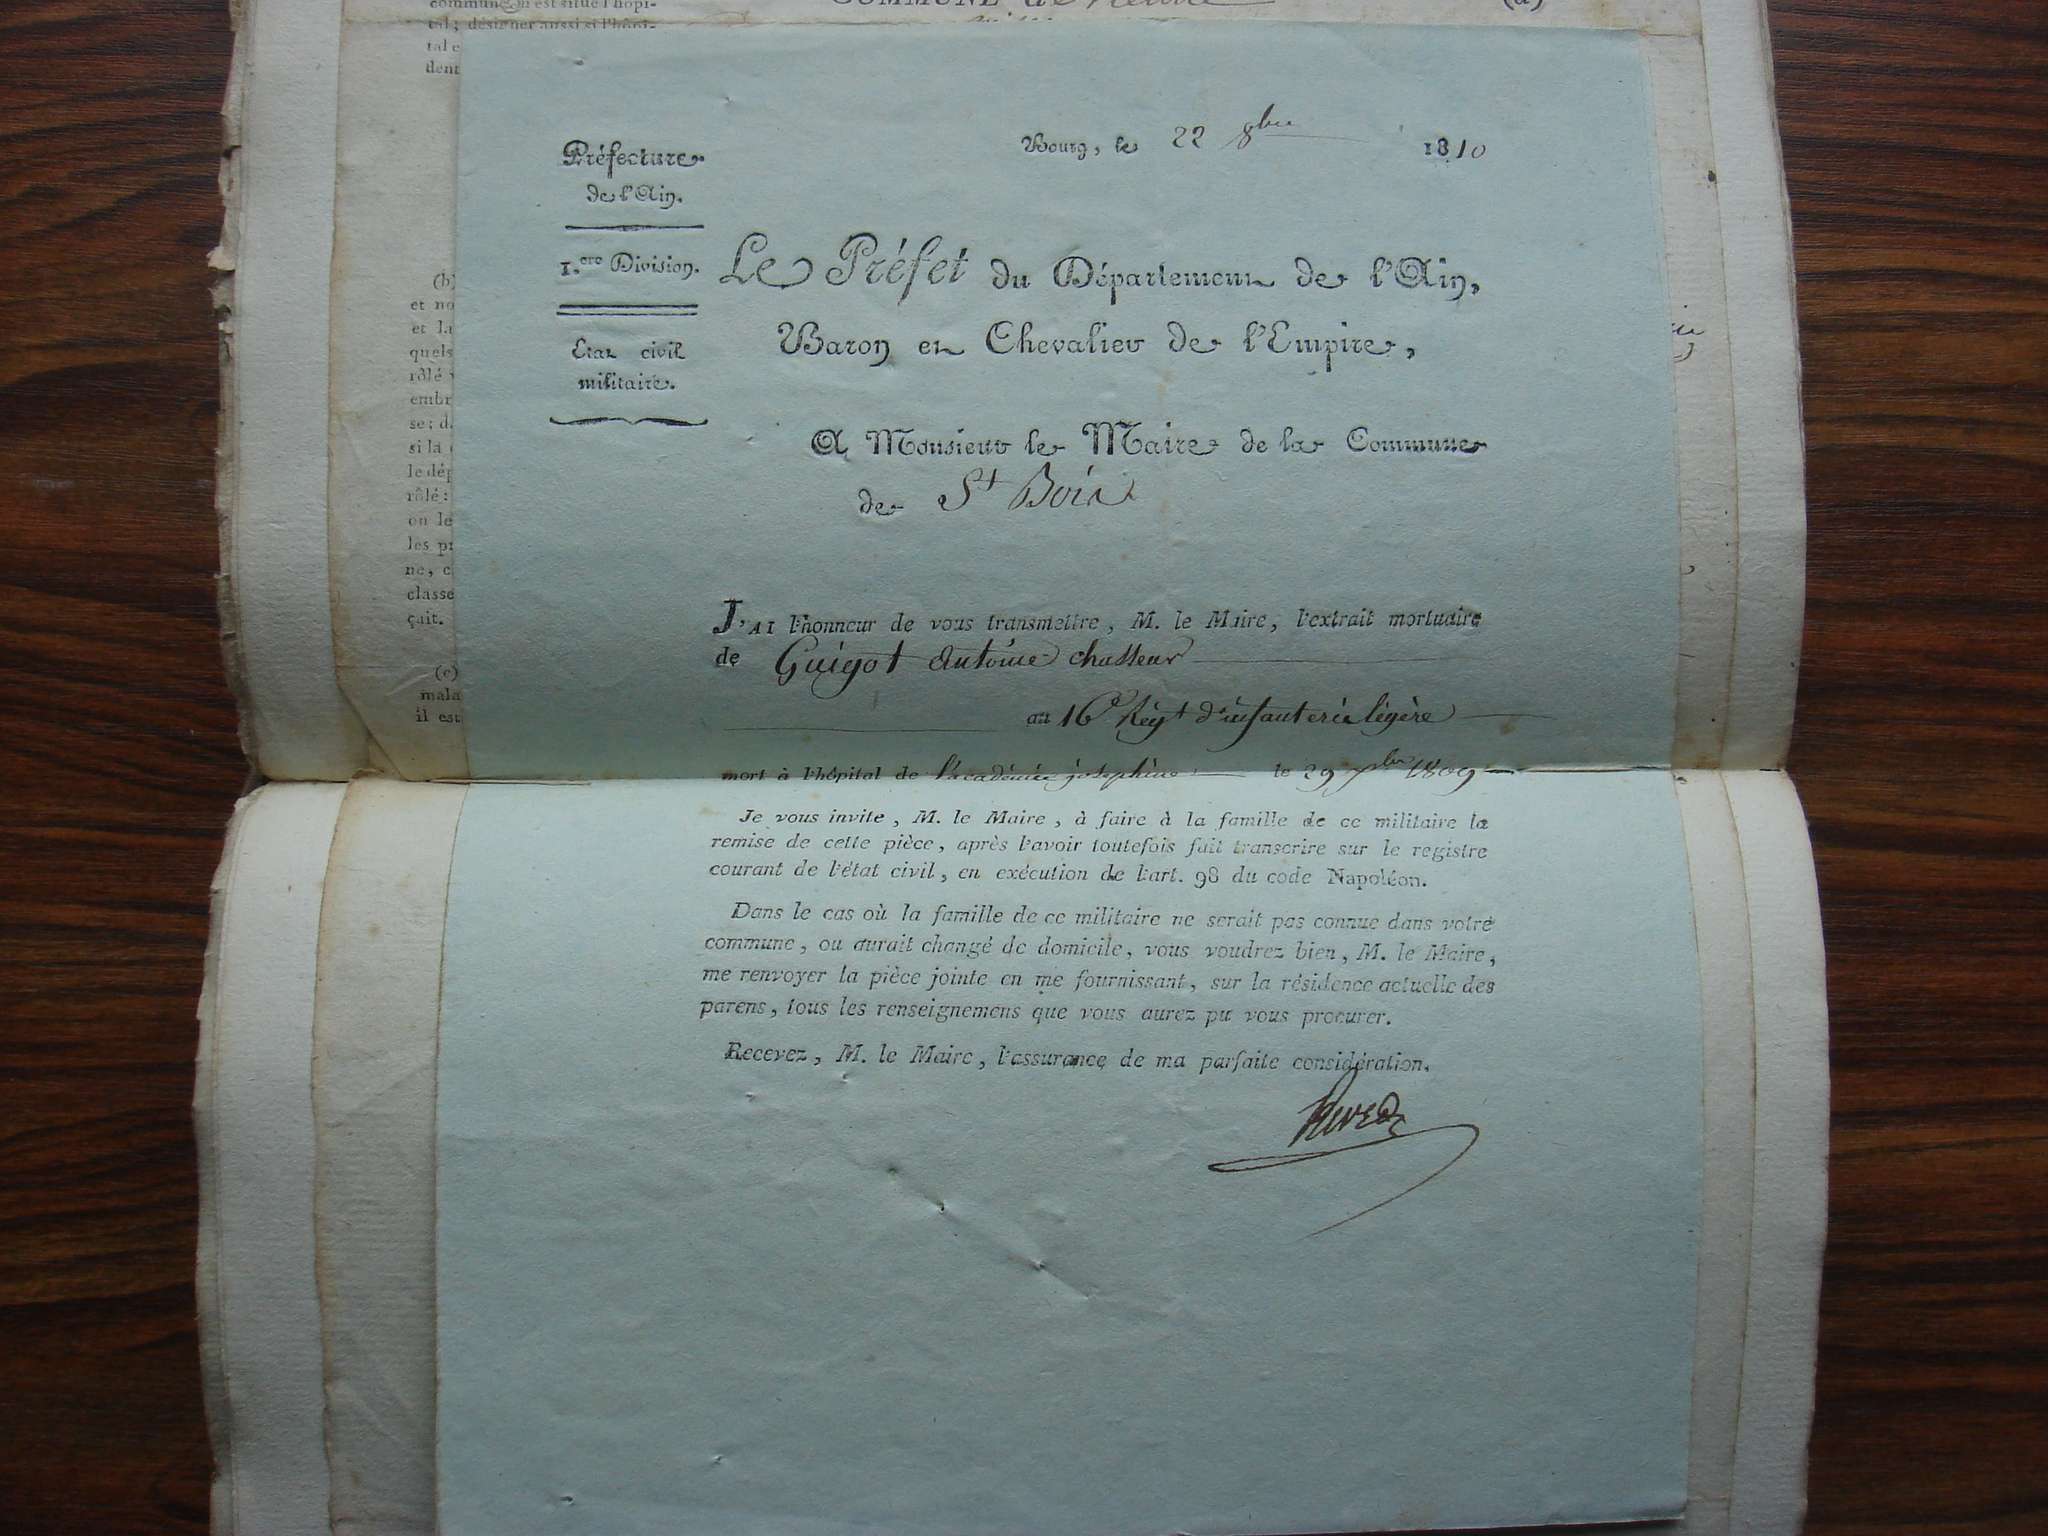 commune où est situé l'hôpi-
tal; désigner aussi si l'hôpi-
tal e
dent
COMMUNE de Vienne
(a)
Préfecture
de l'Ain.
1.ere Division.
Etat civil
militaire.
Bourg, le 22 8bre 1810
Le Préfet du Département de l'Ain,
Baron et Chevalier de l'Empire,
A Monsieur le Maire de la Commune
de St Bois
J'AI l'honneur de vous transmettre, M. le Maire, l'extrait mortuaire
de Guigot Antoine chasseur
au 16e Regt d'infanterie légère
mort à l'hôpital de l'académie josephine le 29 7bre 1809
Je vous invite, M. le Maire, à faire à la famille de ce militaire la
remise de cette pièce, après l'avoir toutefois fait transcrire sur le registre
courant de l'état civil, en exécution de l'art. 98 du code Napoléon.
Dans le cas où la famille de ce militaire ne serait pas connue dans votre
commune, ou aurait changé de domicile, vous voudrez bien, M. le Maire,
me renvoyer la pièce jointe en me fournissant, sur la résidence actuelle des
parens, tous les renseignemens que vous aurez pu vous procurer.
Recevez, M. le Maire, l'assurance de ma parfaite considération.
(b)
et no
et la
quels
rôlé
embr
se; d
si la
le dép
rôlé:
ou le
les pr
ne, c
classe
çait.
(c)
mala
il est